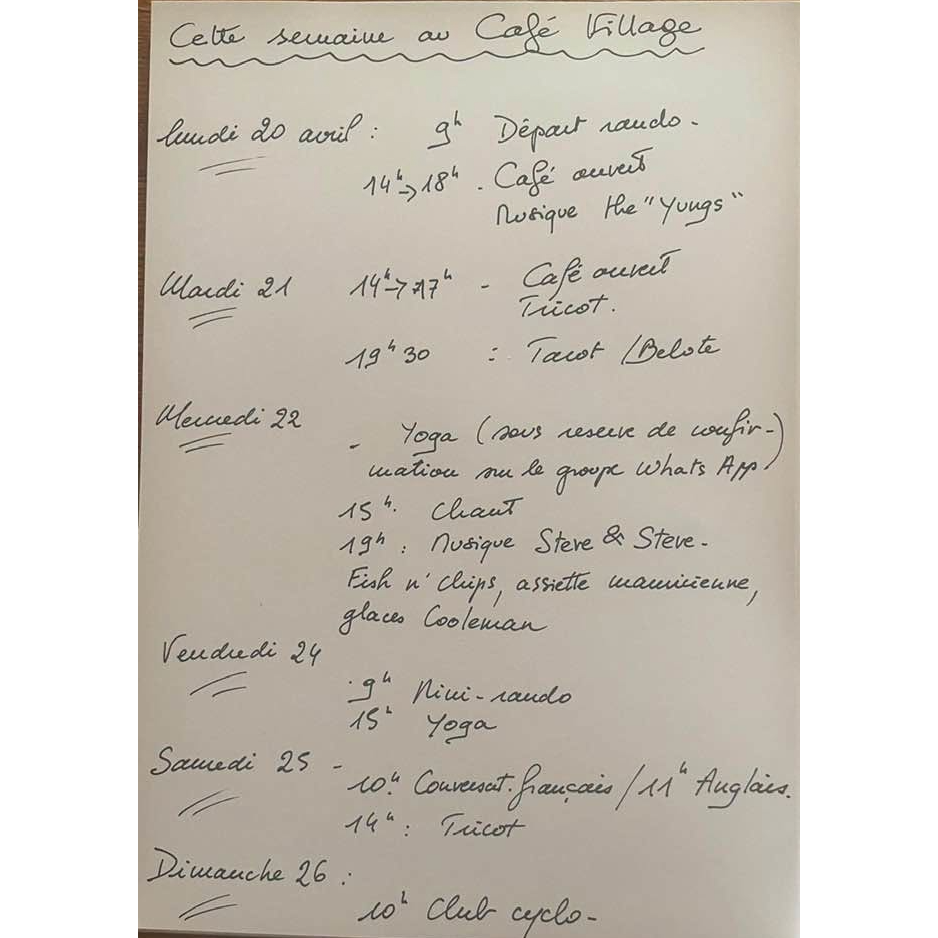 Cette semaine au Café Village
lundi 20 avril : 9h Départ rando -
14h → 18h - Café ouvert
Musique the "Yungs"
Mardi 21 14h → 17h - Café ouvert
Tricot.
19h30 : Tarot / Belote
Mercredi 22
- Yoga (sous reserve de confir-
mation sur le groupe Whats App)
15h. Chant
19h : Musique Steve & Steve -
Fish n' Chips, assiette mauricienne,
glaces Cooleman
Vendredi 24
9h Mini-rando
15h Yoga
Samedi 25 -
10h. Conversat. français / 11h Anglais.
14h : Tricot
Dimanche 26 :
10h Club cyclo -